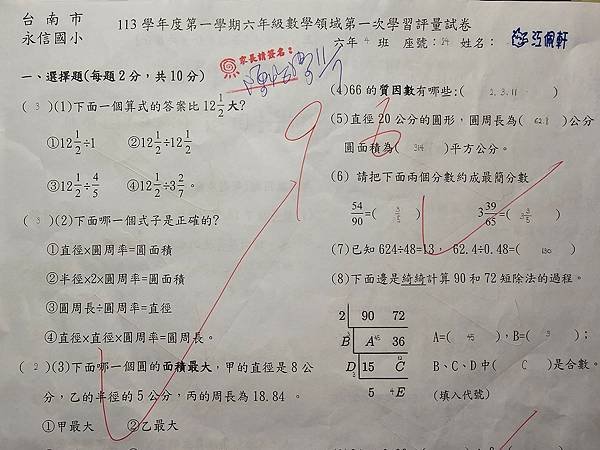 台南市
永信國小
113學年度第一學期六年級數學領域第一次學習評量試卷
六年 4 班 座號: 24 姓名:
家長請簽名:
11/7
96
一、選擇題(每題2分,共10分)
( 3 )(1)下面一個算式的答案比12 1/2大?
①12 1/2÷1 ②12 1/2÷12 1/2
③12 1/2÷4/5 ④12 1/2÷3 2/7。
( 3 )(2)下面哪一個式子是正確的?
①直徑×圓周率=圓面積
②半徑×2×圓周率=圓面積
③圓周長÷圓周率=直徑
④直徑×直徑×圓周率=圓周長。
( 2 )(3)下面哪一個圓的面積最大,甲的直徑是8公
分,乙的半徑的5公分,丙的周長為18.84 。
①甲最大 ②乙最大
(4)66的質因數有哪些:( 2.3.11 )
(5)直徑20公分的圓形,圓周長為( 62.8 )公分
圓面積為( 314 )平方公分。
(6) 請把下面兩個分數約成最簡分數
54/90=( 3/5 ) 3 39/65=( 3 3/5 )
(7)已知624÷48=13, 62.4÷0.48=( 130 )
(8)下面邊是綺綺計算90和72短除法的過程。
2 90 72
B 3 A 45 36
D 3 15 C 12
5 4 E
A=( 45 ),B=( 3 );
B、C、D中( C )是合數。
(填入代號)